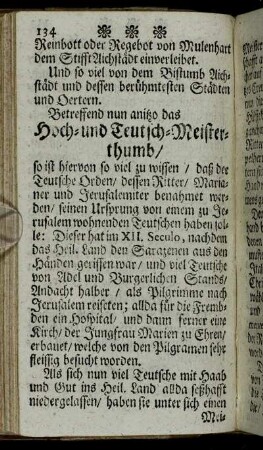 134
Reinbott oder Regebot von Mulenhart
dem Stifft Aichstädt einverleibet.
Und so viel von dem Bistumb Aich-
städt und dessen berühmtesten Städten
und Oertern.
Betreffend nun anitzo das
Hoch- und Teutsch-Meister-
thumb/
so ist hiervon so viel zu wissen / daß der
Teutsche Orden/ dessen Ritter/ Maria-
ner und Jerusalemiter benahmet wer-
den/ seinen Ursprung von einem zu Je-
rusalem wohnenden Teutschen haben sol-
le: Dieser hat im XII. Seculo, nachdem
das Heil. Land den Sarazenen aus den
Händen gerissen war/ und viel Teutsche
von Adel und Burgerlichen Stands/
Andacht halber / als Pilgrimme nach
Jerusalem reiseten; allda für die Fremb-
den ein Hospital/ und dann ferner eine
Kirch/ der Jungfrau Marien zu Ehren/
erbauet/ welche von den Pilgramen sehr
fleissig besucht worden.
Als sich nun viel Teutsche mit Haab
und Gut ins Heil. Land allda seßhafft
niedergelassen/ haben sie unter sich einen
Mei-